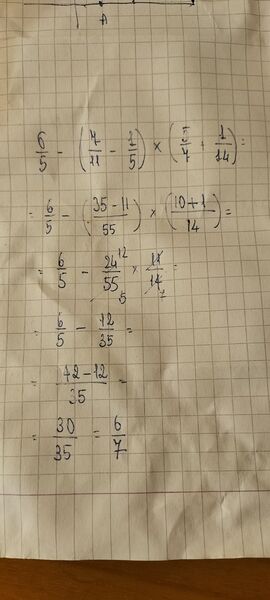 A
6/5 - (7/11 - 1/5) × (5/7 + 1/14) =
= 6/5 - (35 - 11/55) × (10 + 1/14) =
= 6/5 - 24 12/55 5 × 11/14 7 =
= 6/5 - 12/35 =
= 42 - 12/35 =
= 30/35 = 6/7